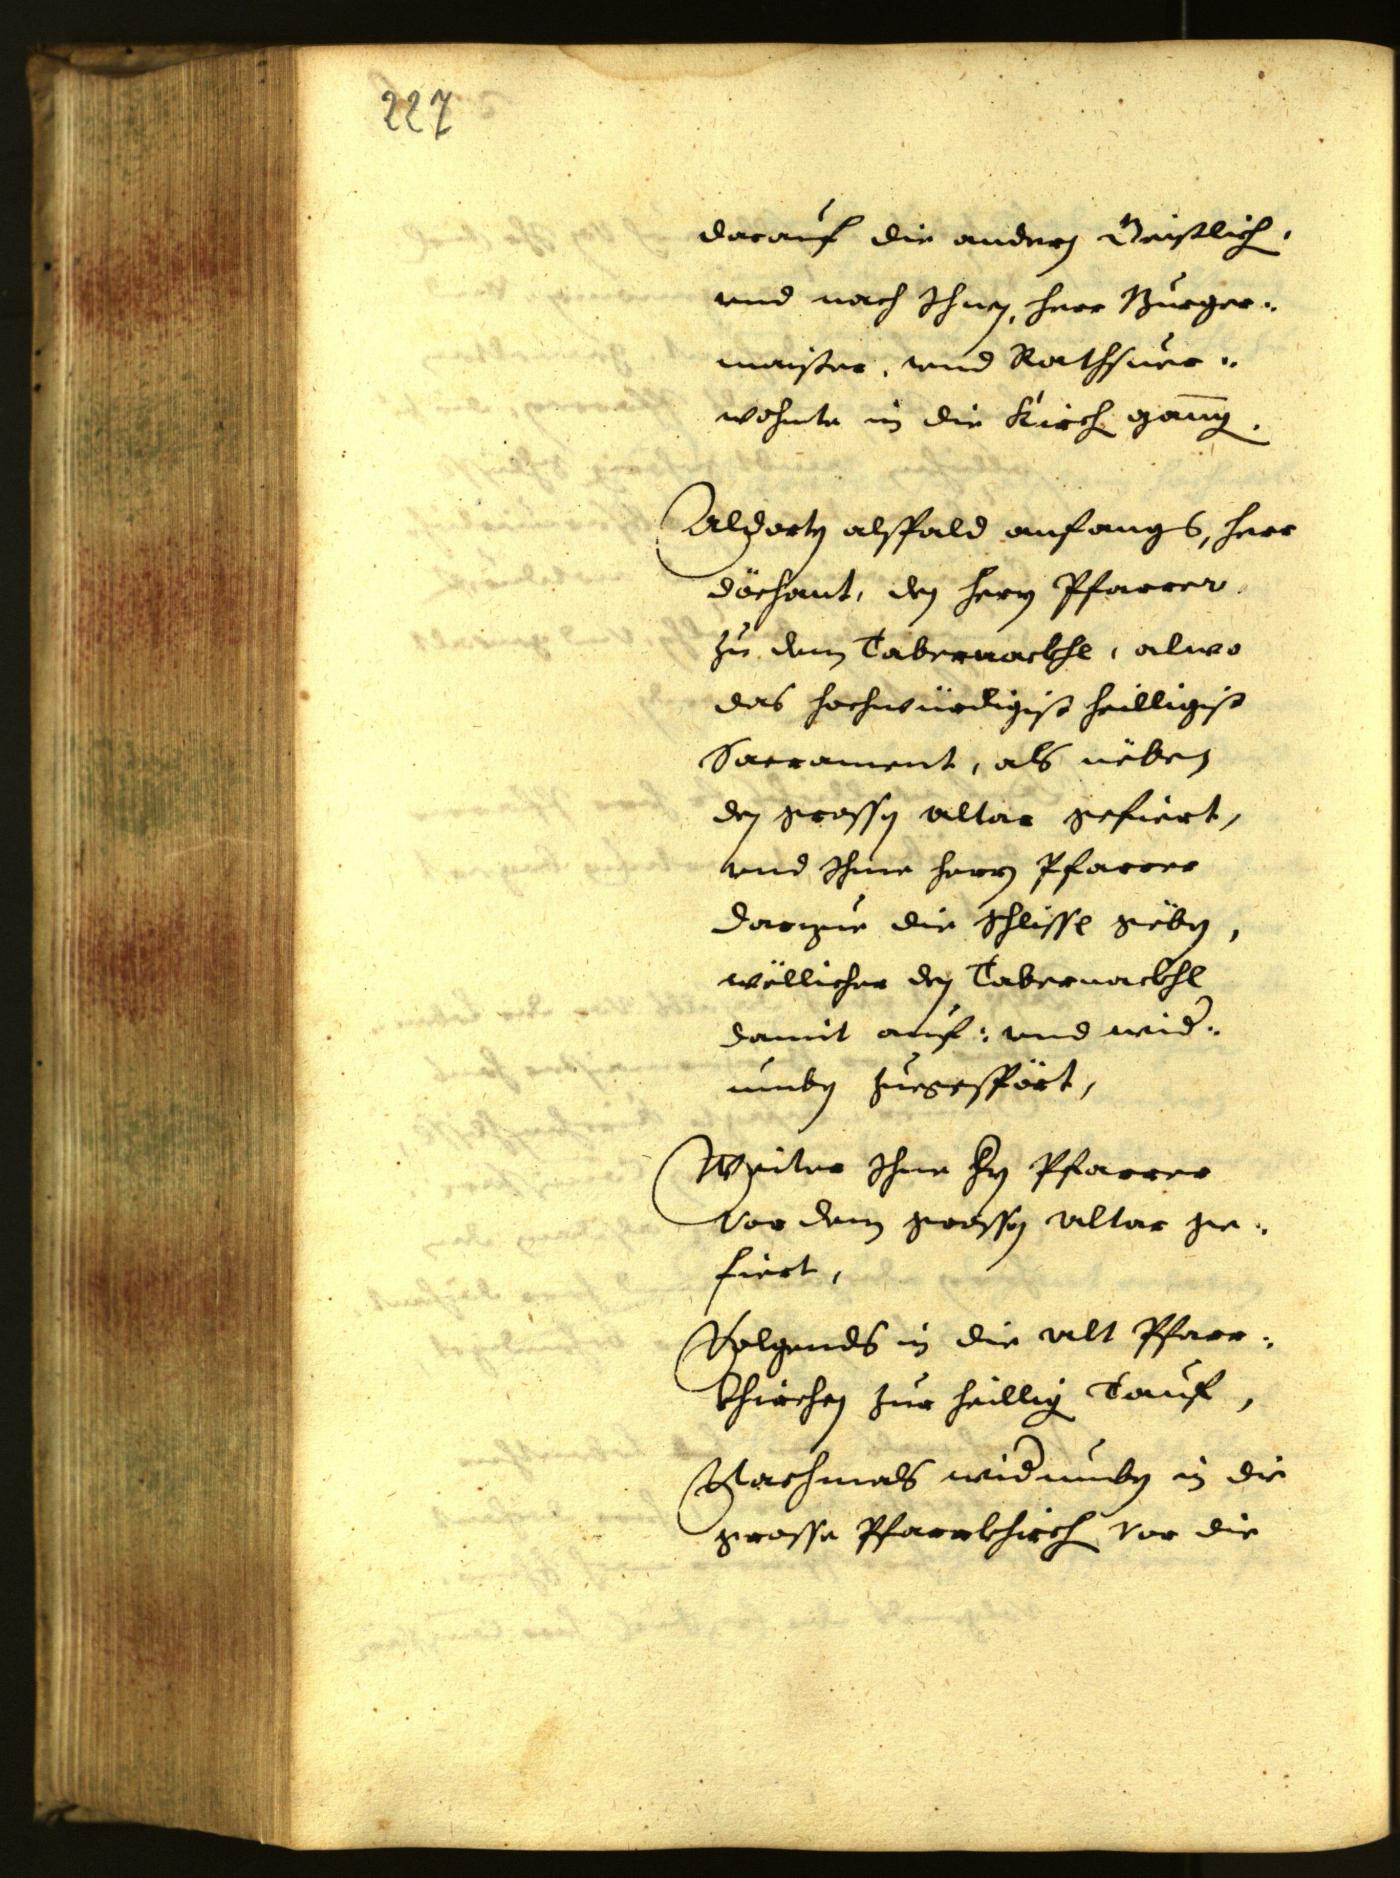 227
darauf die andern Geistlich,
vnd nach Ihnen, herr Burger-
maister, vnd Rathsuer-
wohnte in die Kirch gang.
Aldorten alspald anfangs, herr
döchant, den herrn Pfarrer
zu dem Tabernackhl, alwo
das hochwürdigist heilligist
Sacrament, als nëben
den grossen altar gefiert,
vnd Ihme herrn Pfarrer
darzue die schlissl gëben,
wëllicher den Tabernackhl
damit auf: vnd wid-
umben zuegespört,
Weiter Ihne Hn Pfarrer
vor dem grossen altar ge-
fiert,
Volgends in die alt Pfarr-
khirchen zur heillig Tauf,
Nachmals widumben in die
grosse Pfarrkhirch vor die